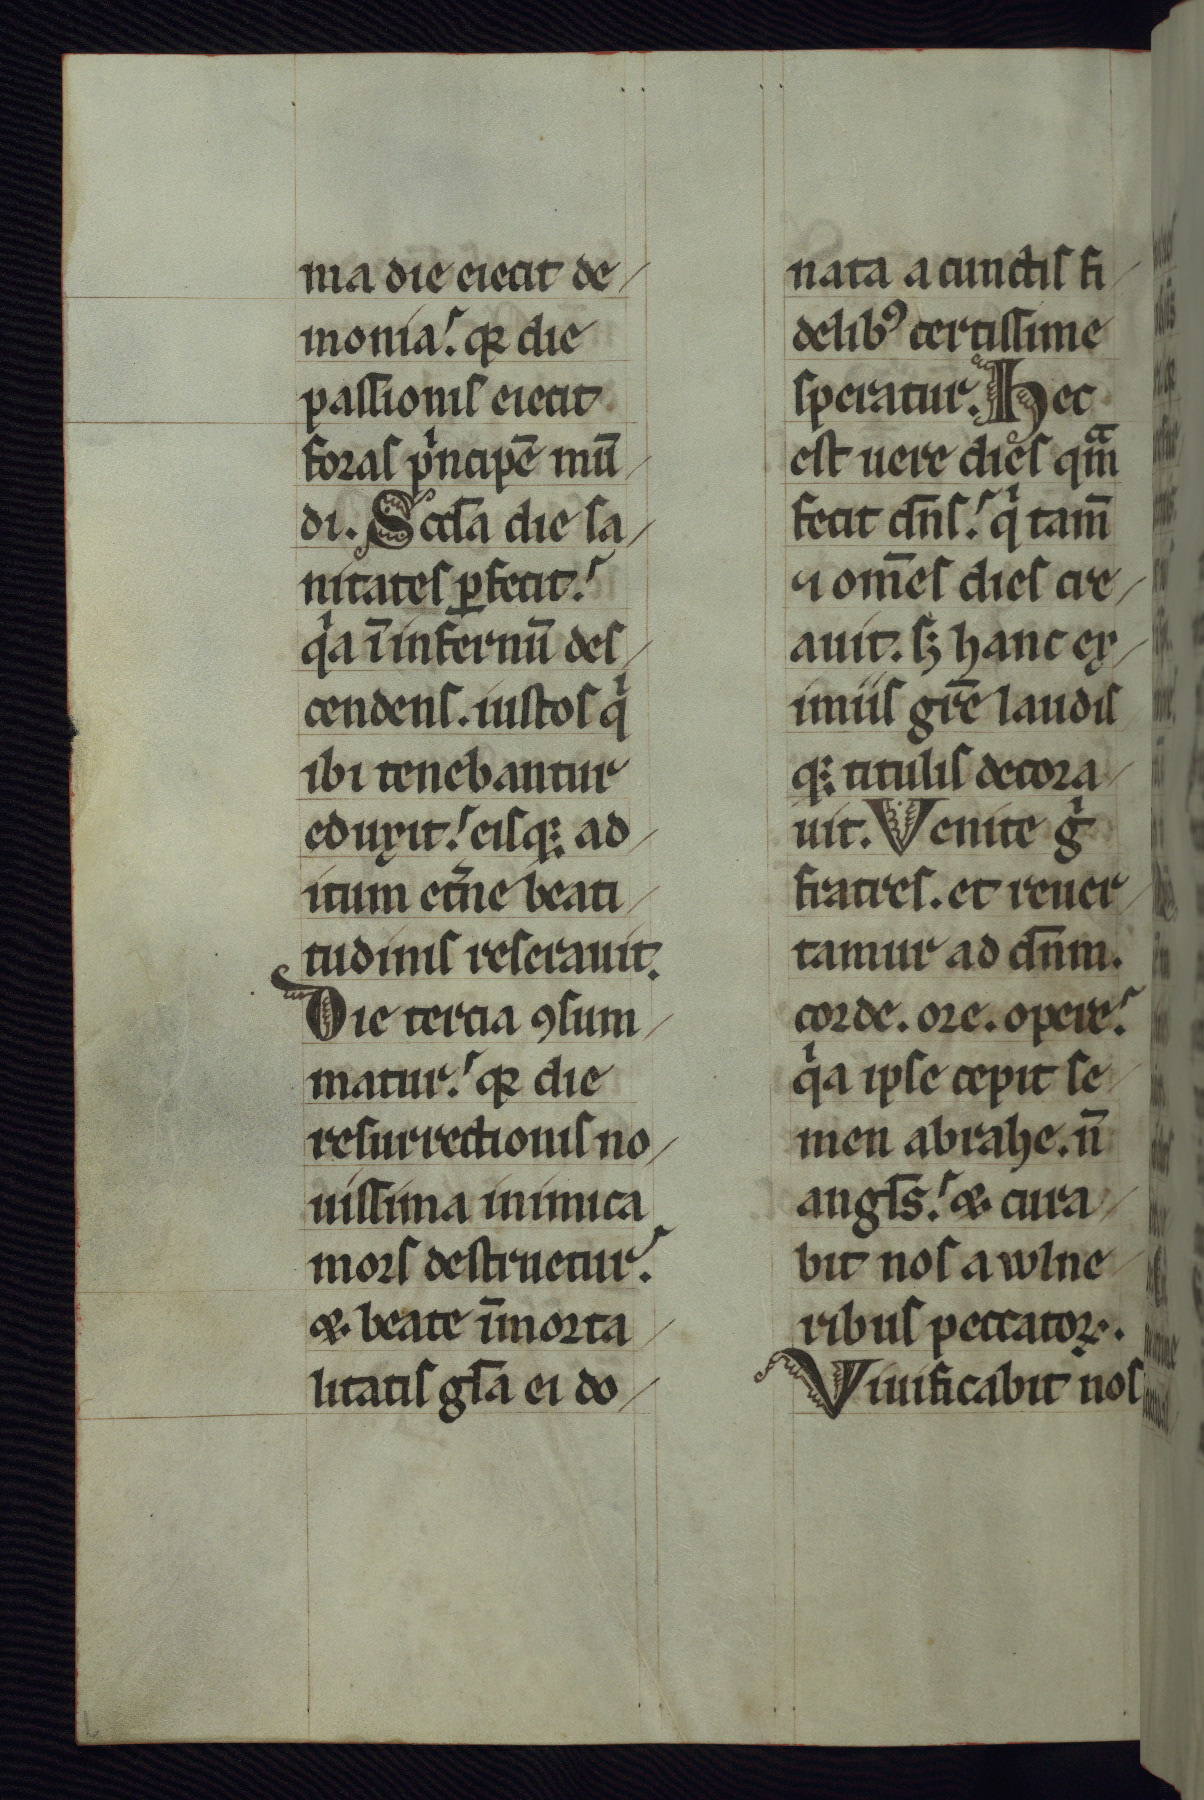 ma die eiecit de/
monia. qꝛ die
passionis eiecit
foras pⁱncipē mū/
di. Scd̄a die sa/
nitates ꝑfecit.
qⁱa ī infernū des/
cendens. iustos qⁱ
ibi tenebantur
eduxit. eisqꝫ ad/
itum et̄ne beati/
tudinis reserauit.
Die tercia ꝯsum/
matur. qꝛ die
resurrectionis no/
uissima inimica
mors destruetur.
⁊ beate īmorta/
litatis gl̄a ei do/
nata a cunctis fi/
delibꝰ certissime
speratur. Hec
est uere dies quͣm
fecit dn̄s. qⁱ tam̄
⁊ om̄es dies cre/
auit. sꝫ hanc ex/
imiis gr̄e laudis
qꝫ titulis decora/
uit. Venite gͥ
fratres. et reuer/
tamur ad dn̄m.
corde. ore. opere.
qⁱa ipse cepit se/
men abrahe. n̄
angl̄s. ⁊ cura/
bit nos a wlne/
ribus peccatoꝝ.
Viuificabit nos